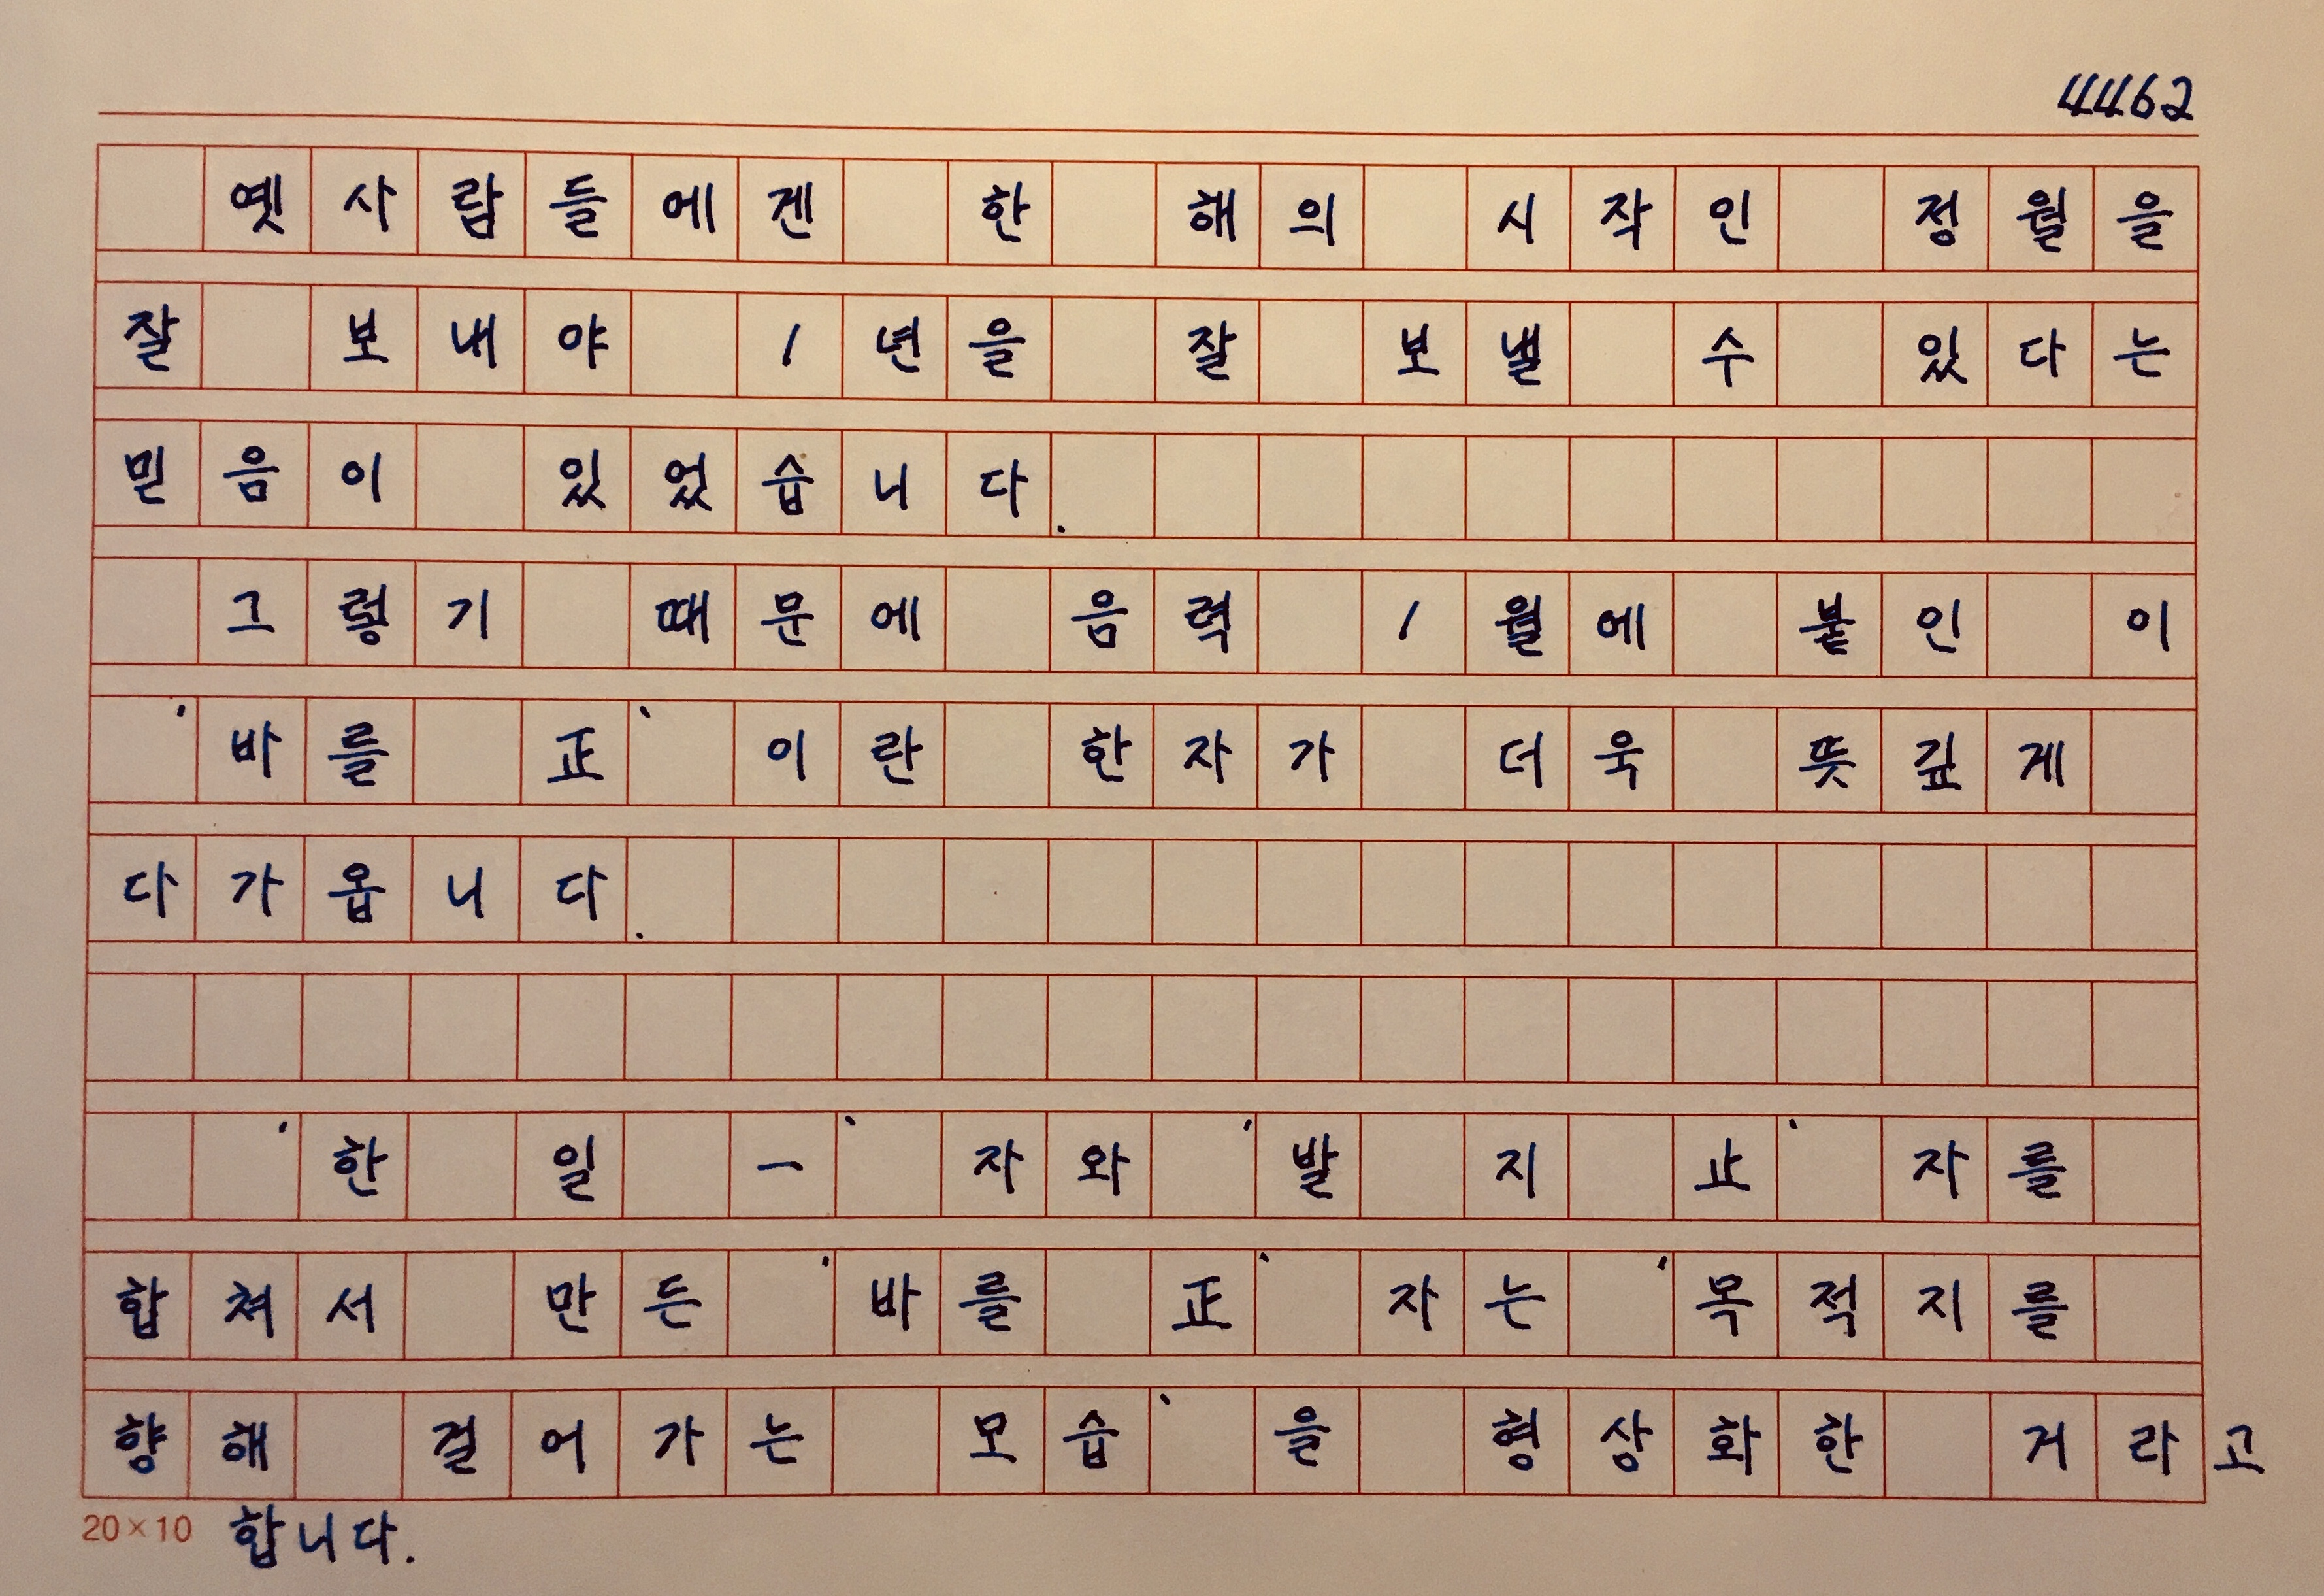 4462
옛사람들에겐 한 해의 시작인 정월을
잘 보내야 1년을 잘 보낼 수 있다는
믿음이 있었습니다.
그렇기 때문에 음력 1월에 붙인 이
'바를 正'이란 한자가 더욱 뜻깊게
다가옵니다.
'한 일 一' 자와 '발 지 止' 자를
합쳐서 만든 '바를 正' 자는 '목적지를
향해 걸어가는 모습'을 형상화한 거라고
합니다.
20×10